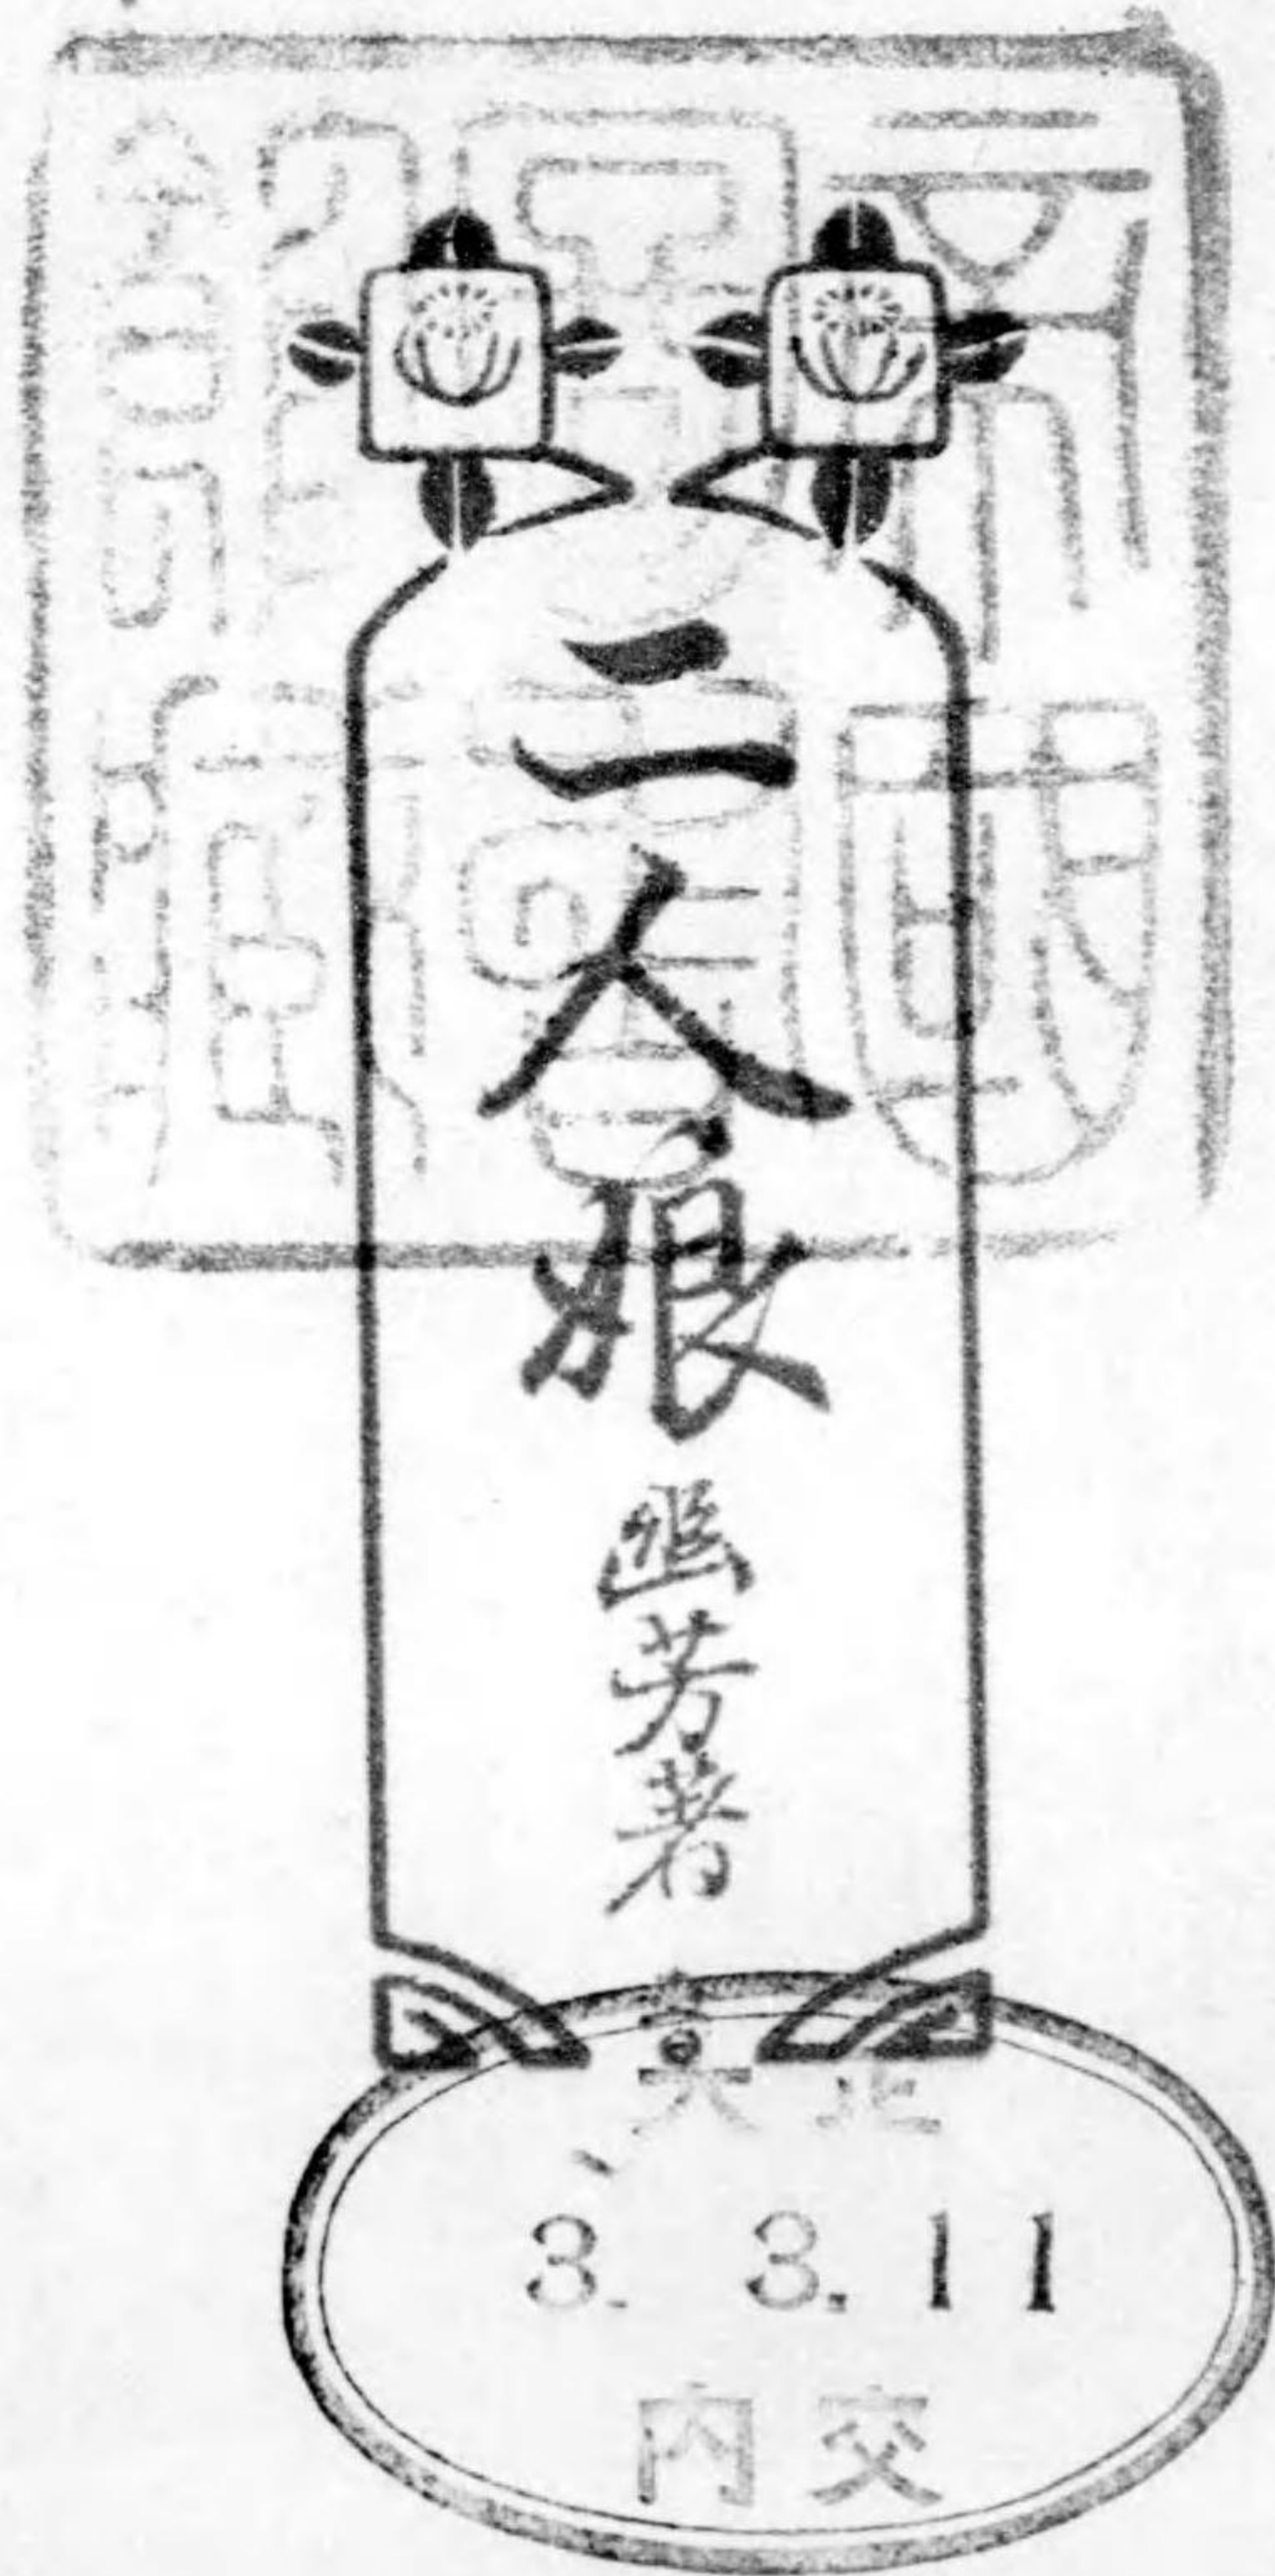 二人娘
幽芳著
大正
3. 3. 11
内交